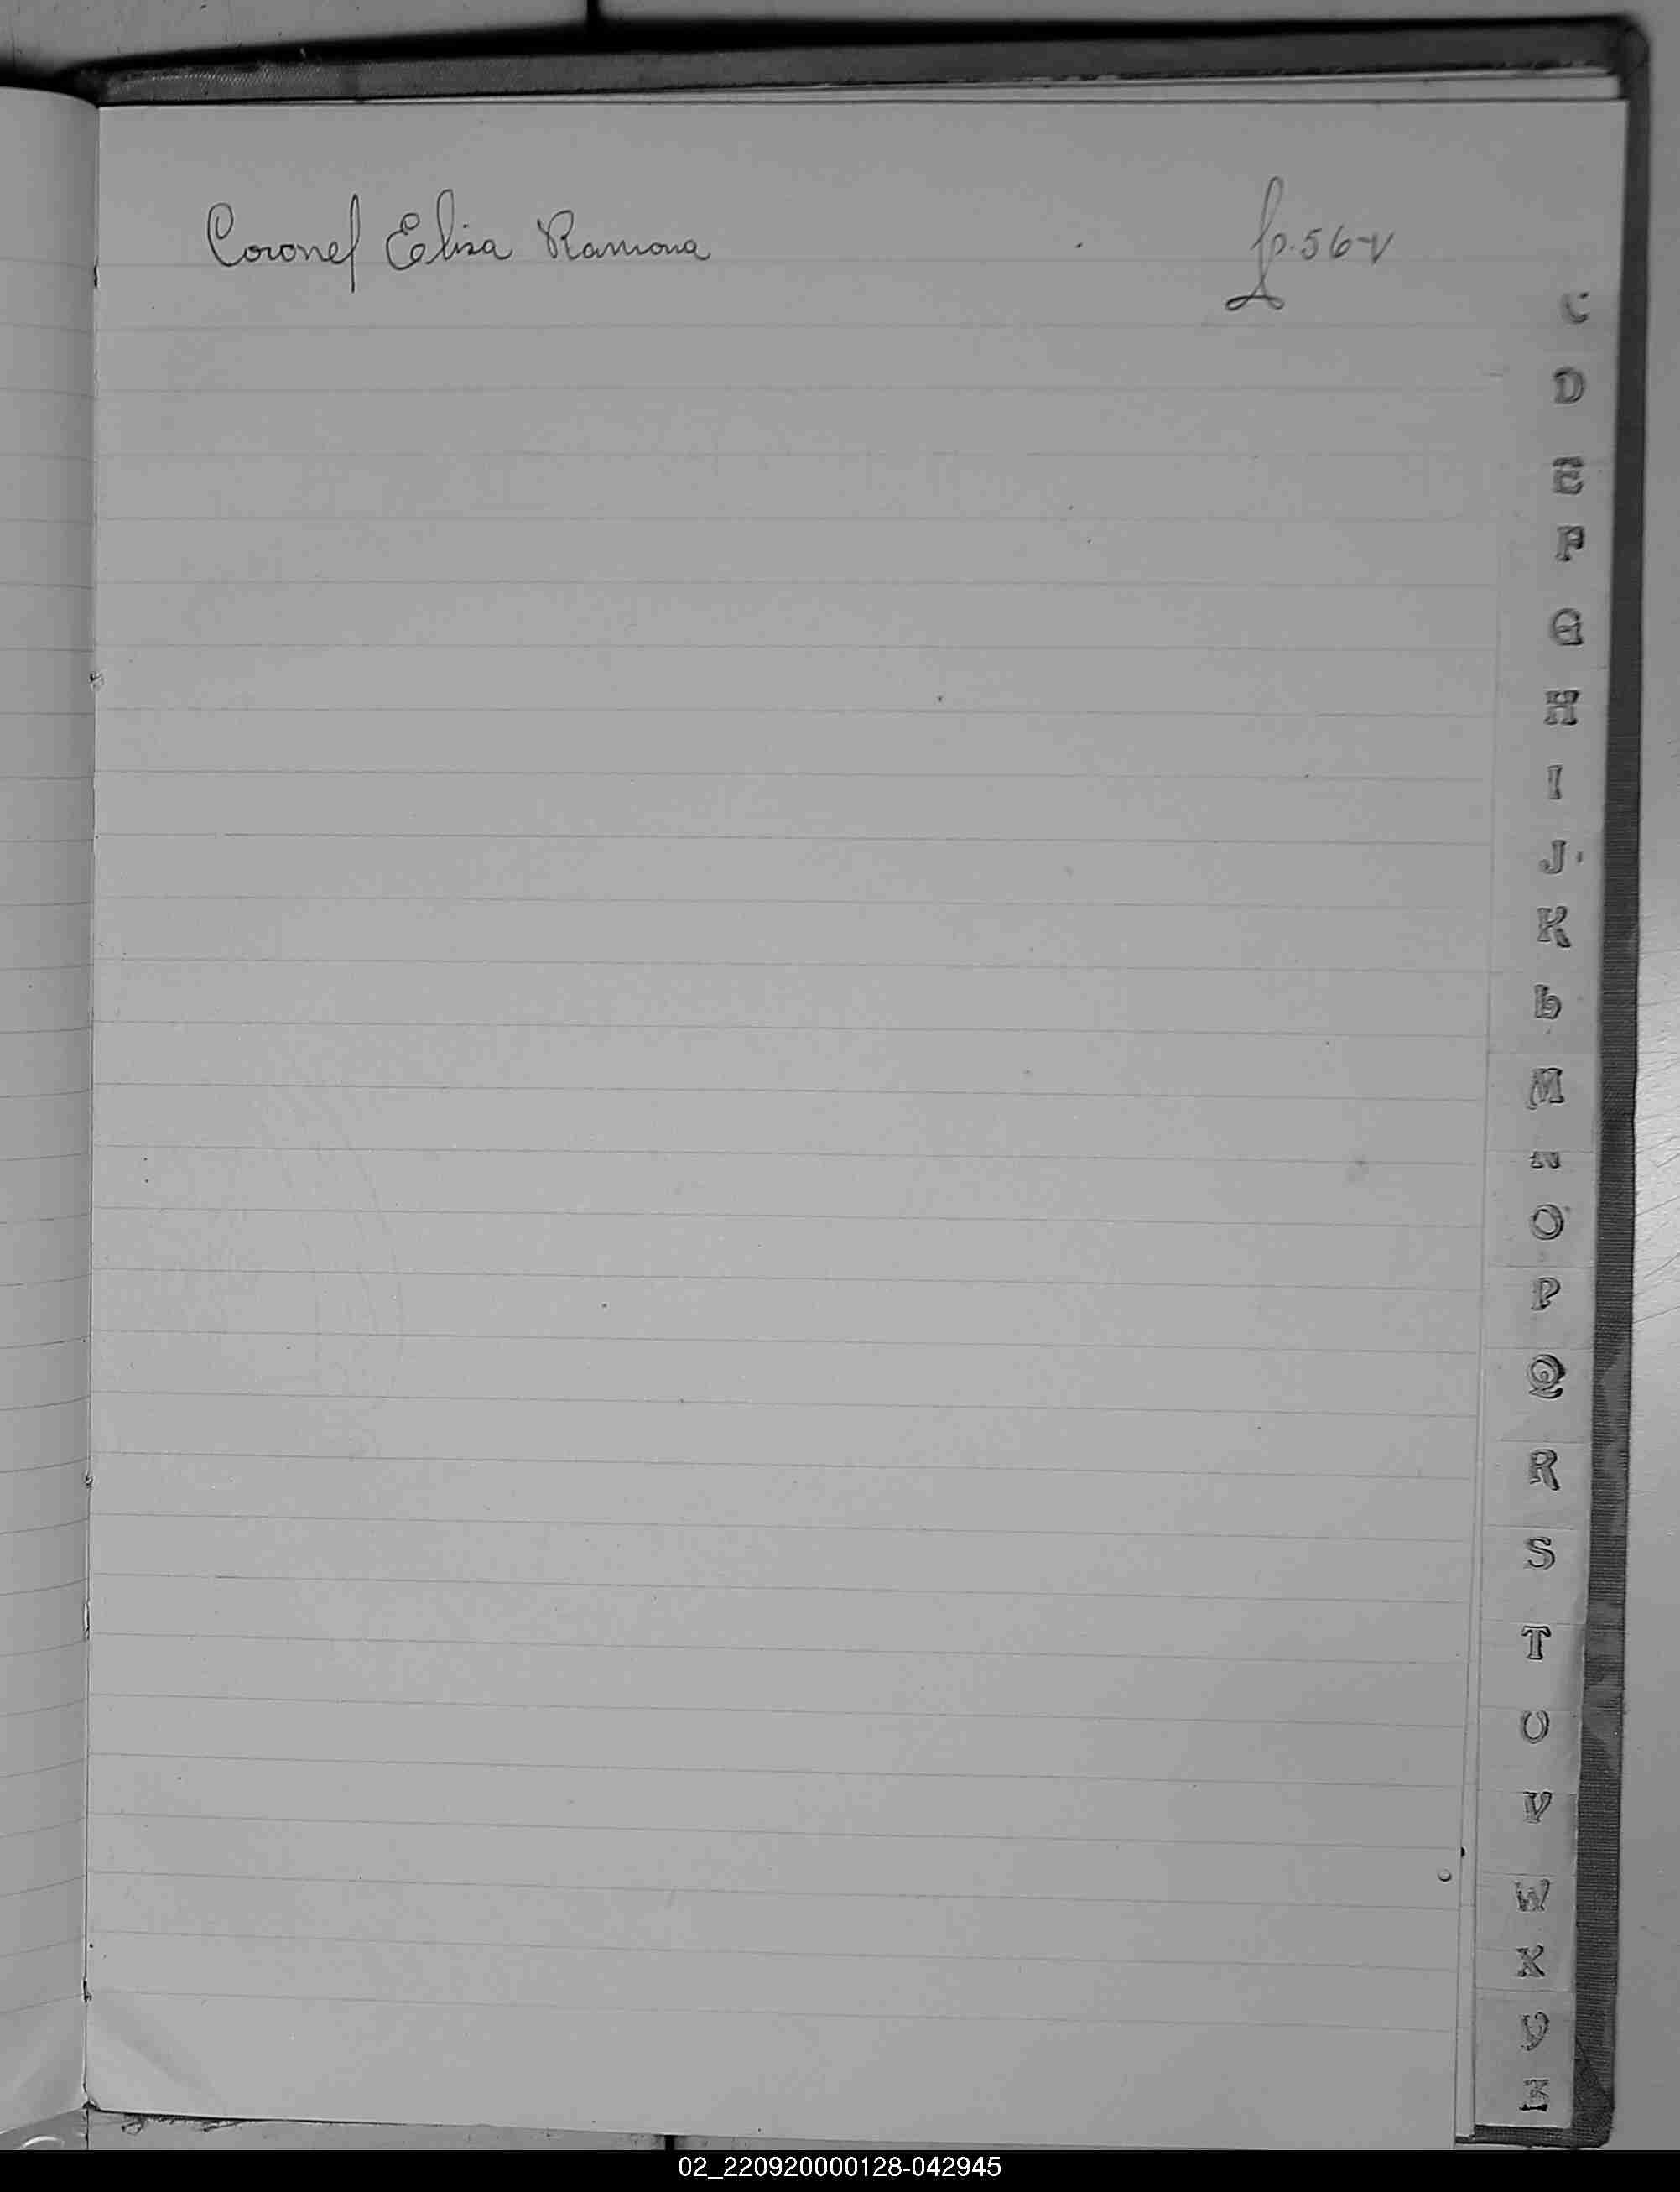 Coronel Elisa Ramona fo. 56-v
C
D
E
F
G
H
I
J
K
L
M
N
O
P
Q
R
S
T
U
V
W
X
Y
Z
02_220920000128-042945